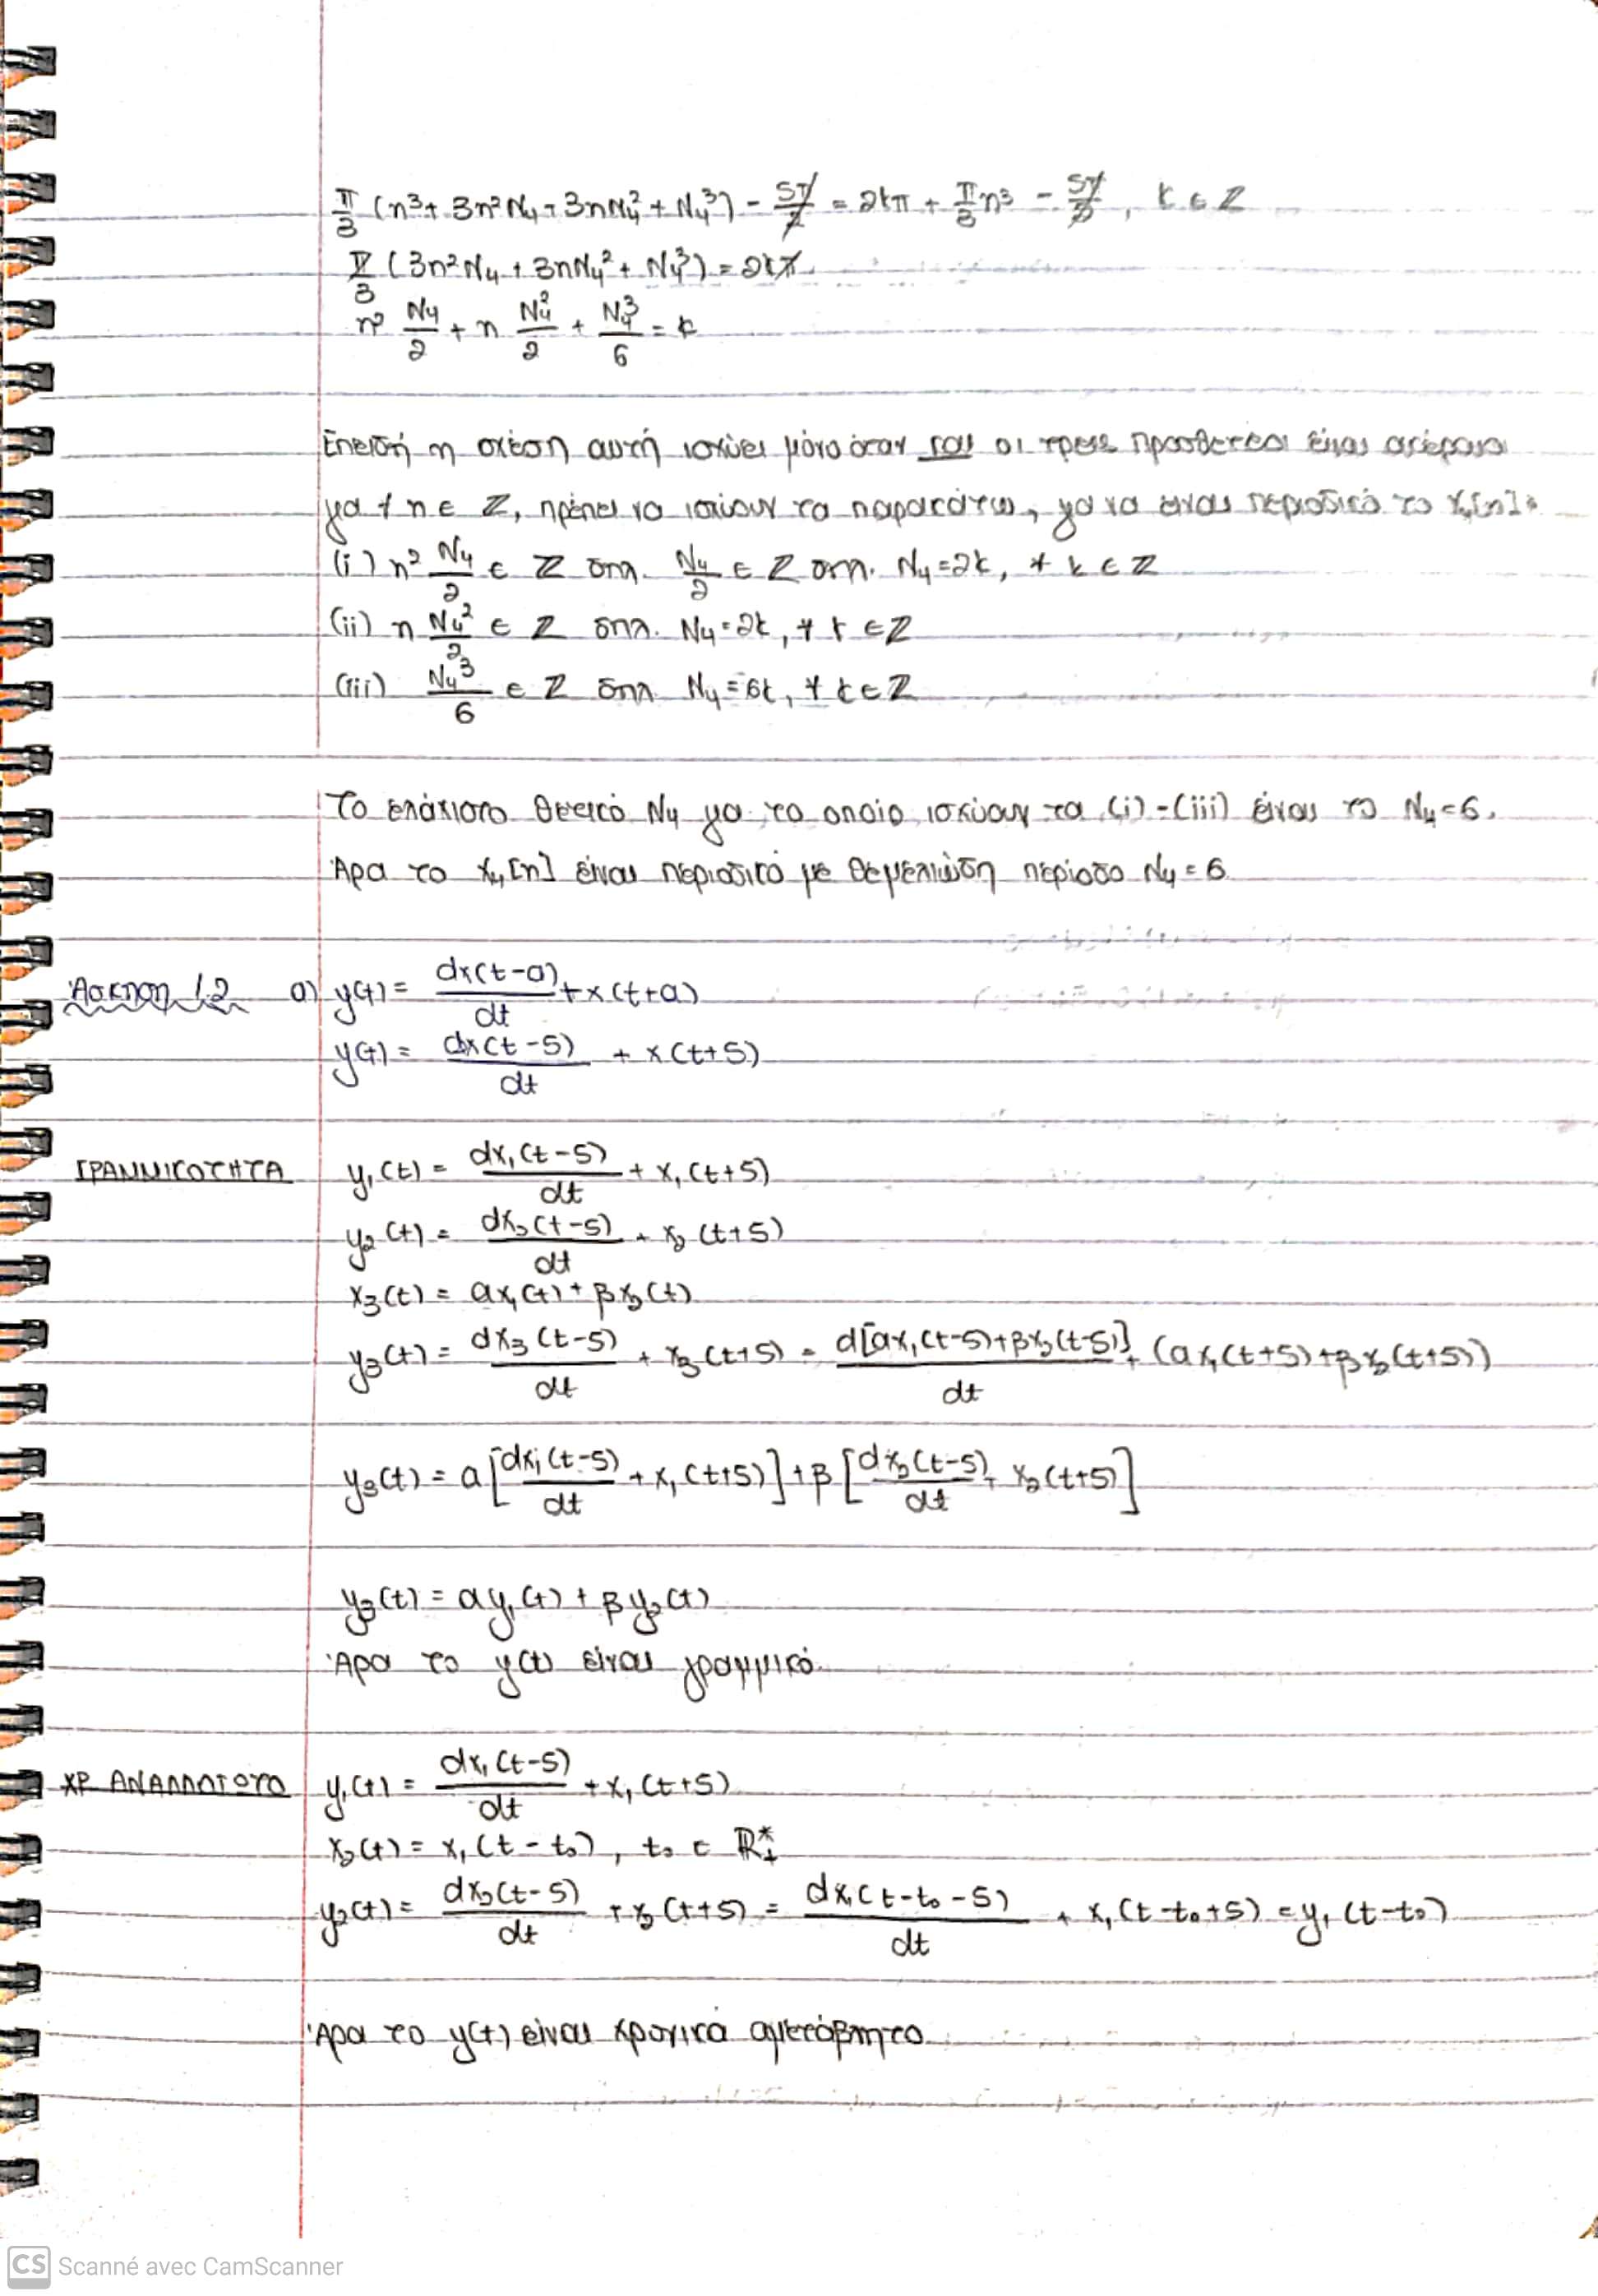 π/3 (n³ + 3n²N₄ + 3nN₄² + N₄³) - 5π/2 = 2kπ + π/3 n³ - 5π/3, k ∈ ℤ
π/3 (3n²N₄ + 3nN₄² + N₄³) = 2kπ
n² N₄/2 + n N₄²/2 + N₄³/6 = k
Επειδή η σχέση αυτή ισχύει μόνο όταν και οι τρεις προσθετέοι είναι ακέραιοι
για ∀ n ∈ ℤ, πρέπει να ισχύουν τα παρακάτω, για να είναι περιοδικό το x₄[n]:
(i) n² N₄/2 ∈ ℤ δηλ. N₄/2 ∈ ℤ δηλ. N₄=2k, ∀ k ∈ ℤ
(ii) n N₄²/2 ∈ ℤ δηλ. N₄=2k, ∀ k ∈ ℤ
(iii) N₄³/6 ∈ ℤ δηλ. N₄=6k, ∀ k ∈ ℤ
Το ελάχιστο θετικό N₄ για το οποίο ισχύουν τα (i)-(iii) είναι το N₄=6.
Άρα το x₄[n] είναι περιοδικό με θεμελιώδη περίοδο N₄=6
Άσκηση 1.2 α) y(t) = dx(t-a)/dt + x(t+a)
y(t) = dx(t-5)/dt + x(t+5)
ΓΡΑΜΜΙΚΟΤΗΤΑ y₁(t) = dx₁(t-5)/dt + x₁(t+5)
y₂(t) = dx₂(t-5)/dt + x₂(t+5)
x₃(t) = αx₁(t) + βx₂(t)
y₃(t) = dx₃(t-5)/dt + x₃(t+5) = d[αx₁(t-5)+βx₂(t-5)]/dt + (αx₁(t+5)+βx₂(t+5))
y₃(t) = α[dx₁(t-5)/dt + x₁(t+5)] + β[dx₂(t-5)/dt + x₂(t+5)]
y₃(t) = αy₁(t) + βy₂(t)
Άρα το y(t) είναι γραμμικό.
ΧΡ ΑΝΑΛΛΟΙΩΤΟ y₁(t) = dx₁(t-5)/dt + x₁(t+5)
x₂(t) = x₁(t-t₀), t₀ ∈ ℝ*₊
y₂(t) = dx₂(t-5)/dt + x₂(t+5) = dx₁(t-t₀-5)/dt + x₁(t-t₀+5) = y₁(t-t₀)
Άρα το y(t) είναι χρονικά αμετάβλητο.
CS Scanné avec CamScanner